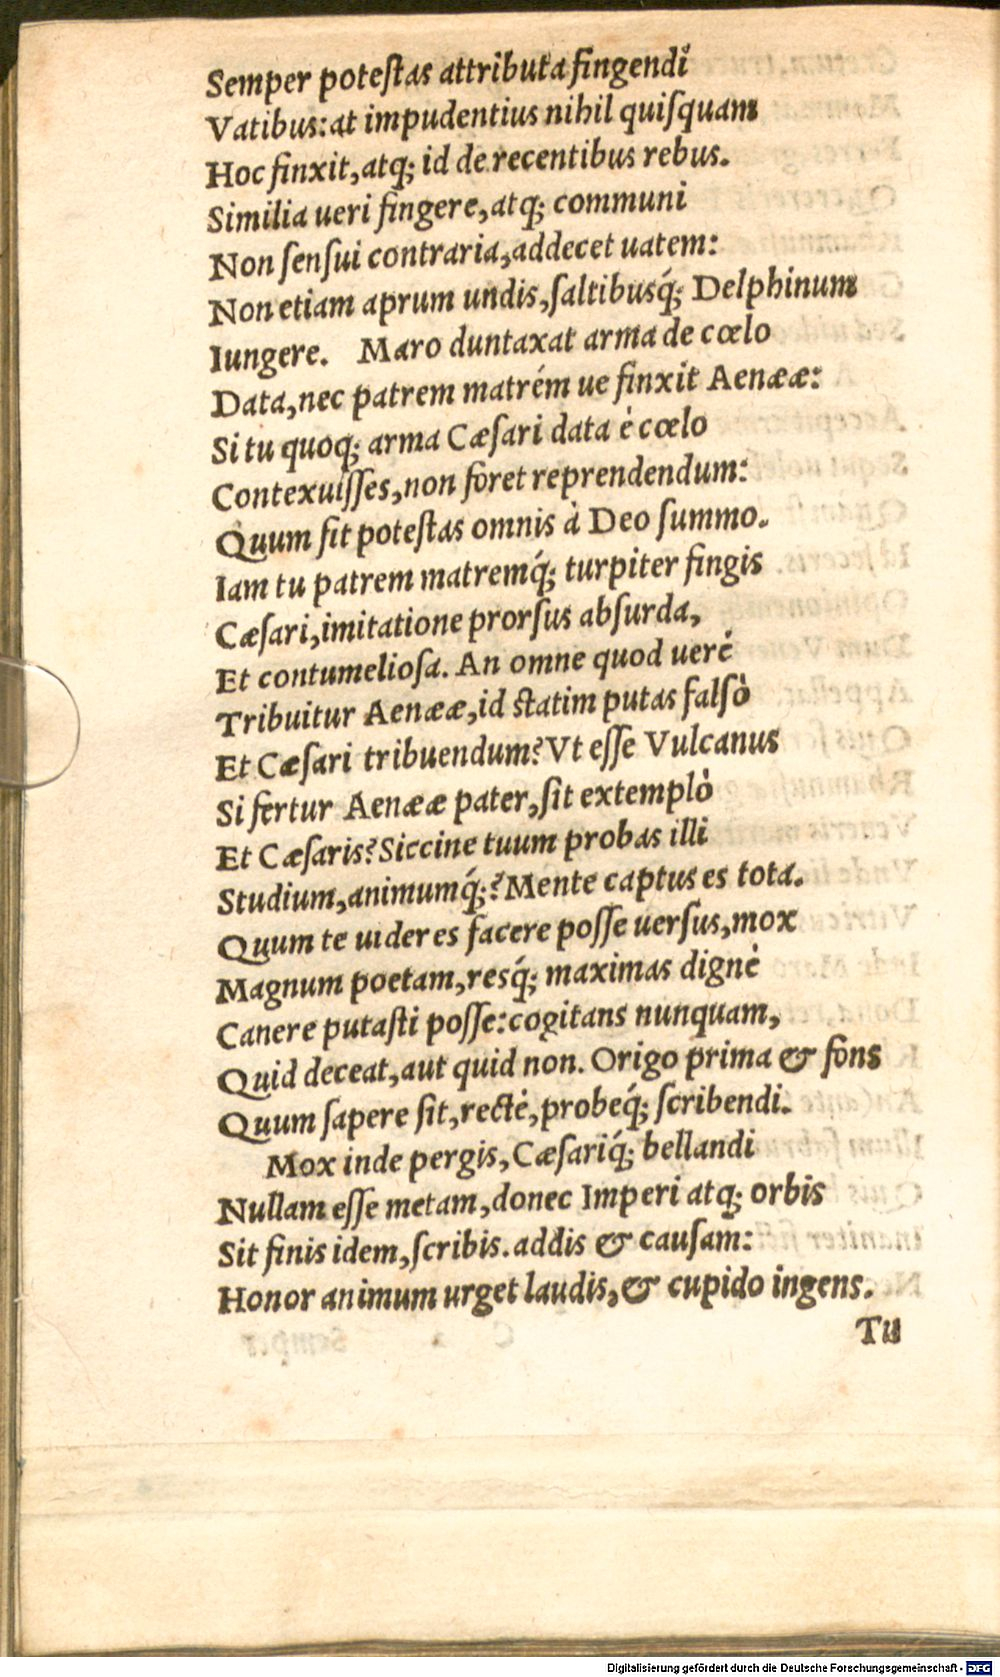 Semper poteſtas attributa fingendi
Vatibus: at impudentius nihil quiſquam
Hoc finxit, atq; id de recentibus rebus.
Similia ueri fingere, atq; communi
Non ſenſui contraria, addecet uatem:
Non etiam aprum undis, ſaltibusq́; Delphinum
Iungere. Maro duntaxat arma de cœlo
Data, nec patrem matrém ue finxit Aenææ:
Si tu quoq; arma Cæſari data è cœlo
Contexuiſſes, non foret reprendendum:
Quum ſit poteſtas omnis à Deo ſummo.
Iam tu patrem matremq́; turpiter fingis
Cæſari, imitatione prorſus abſurda,
Et contumelioſa. An omne quod ueré
Tribuitur Aenææ, id ſtatim putas falſò
Et Cæſari tribuendum? Vt eſſe Vulcanus
Si fertur Aenææ pater, ſit extemplò
Et Cæſaris? Siccine tuum probas illi
Studium, animumq́;? Mente captus es tota.
Quum te uideres facere poſſe uerſus, mox
Magnum poetam, resq́; maximas dignè
Canere putaſti poſſe: cogitans nunquam,
Quid deceat, aut quid non. Origo prima & fons
Quum ſapere ſit, rectè, probeq́; ſcribendi.
Mox inde pergis, Cæſariq́; bellandi
Nullam eſſe metam, donec Imperi atq; orbis
Sit finis idem, ſcribis. addis & cauſam:
Honor animum urget laudis, & cupido ingens.
Tu
Digitalisierung gefördert durch die Deutsche Forschungsgemeinschaft - DFG